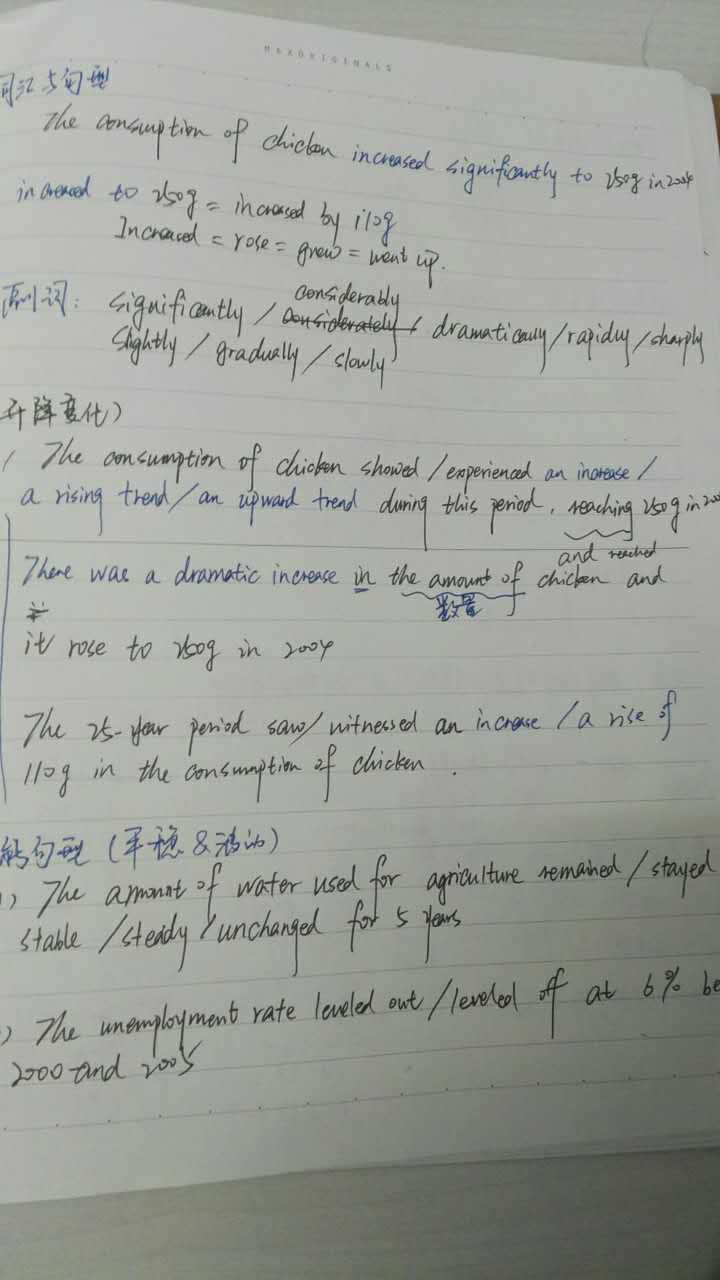 MAXORIGINALS
词汇与句型
The consumption of chicken increased significantly to 250g in 2004
increased to 250g = increased by 110g
Increased = rose = grew = went up.
副词: significantly / considerately / dramatically / rapidly / sharply
considerably
slightly / gradually / slowly
升降变化)
The consumption of chicken showed / experienced an increase /
a rising trend / an upward trend during this period, reaching 250g in
and reached
There was a dramatic increase in the amount of chicken and
数量
it rose to 250g in 2004
The 25-year period saw / witnessed an increase / a rise of
110g in the consumption of chicken.
句型 (平稳&波动)
1) The amount of water used for agriculture remained / stayed
stable / steady / unchanged for 5 years
) The unemployment rate leveled out / leveled off at 6% be
2000 and 2005